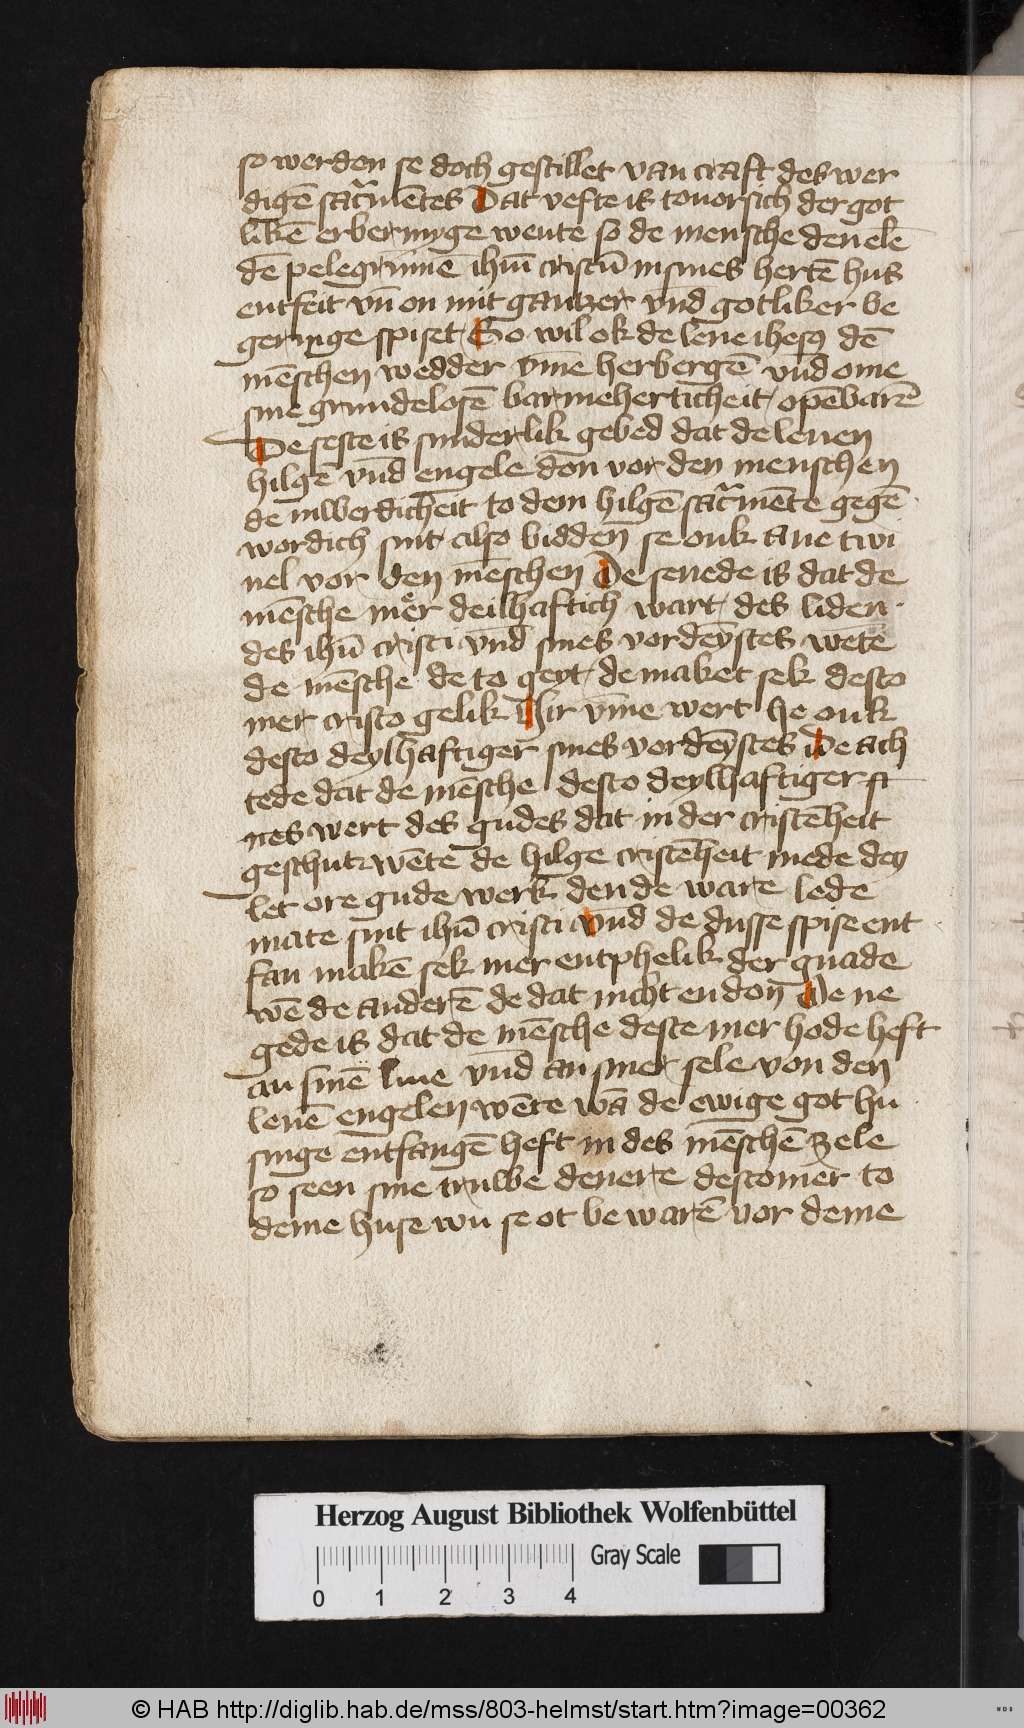 so werden se doch gestillet van craft des wer
digē sac̄mētes Dat vefte is touorsich der got
likē erbermyge wente so de mensche den elē
dē pelegrimē ihm̄ cristū in sines hertē hus
entfeit vn̄ on mit gantzer vnd gotliker be
geringe spiset So wil ok de leue ihesꝯ dē
mēschen wedder vm̄e herbergē vnd ome
sine grundelosē barmeherticheit opēbarē
De seste is sunderlik gebed dat de leuen
hilgē vnd engele don vor den menschen
de in werdicheit to dem hilgē sac̄mēte gegē
wordich sint also bidden se ouk ane twi
uel vor den mēschen De seuede is dat de
mēsche mer deilhaftich wart des liden
des ihū cristi vnd sines vordeȳstes wēte
de mēsche de to geyt de maket sek desto
mer cristo gelik Hir vm̄e wert he ouk
desto deylhaftiger sines vordeȳstes De ach
tede dat de mēsche desto deylhaftiger si
nes wert des gudes dat in der cristēheit
geschut wēte de hilge cristēheit mede dey
let ore gude werk den de ware lede
mate sint ihū cristi vnd de dusse spise ent
fan makē sek mer entphelik der gnade
wē de anderē de dat nicht en don De ne
gede is dat de mēsche deste mer hode heft
an sinē liue vnd an siner sele von den
leuē engelen wēte wā de ewige got hu
singe entfangē heft in des mēschē zele
so seen sine truwe denere destomer to
deme huse wu se ot bewarē vor deme
Herzog August Bibliothek Wolfenbüttel
Gray Scale
0 1 2 3 4
© HAB http://diglib.hab.de/mss/803-helmst/start.htm?image=00362